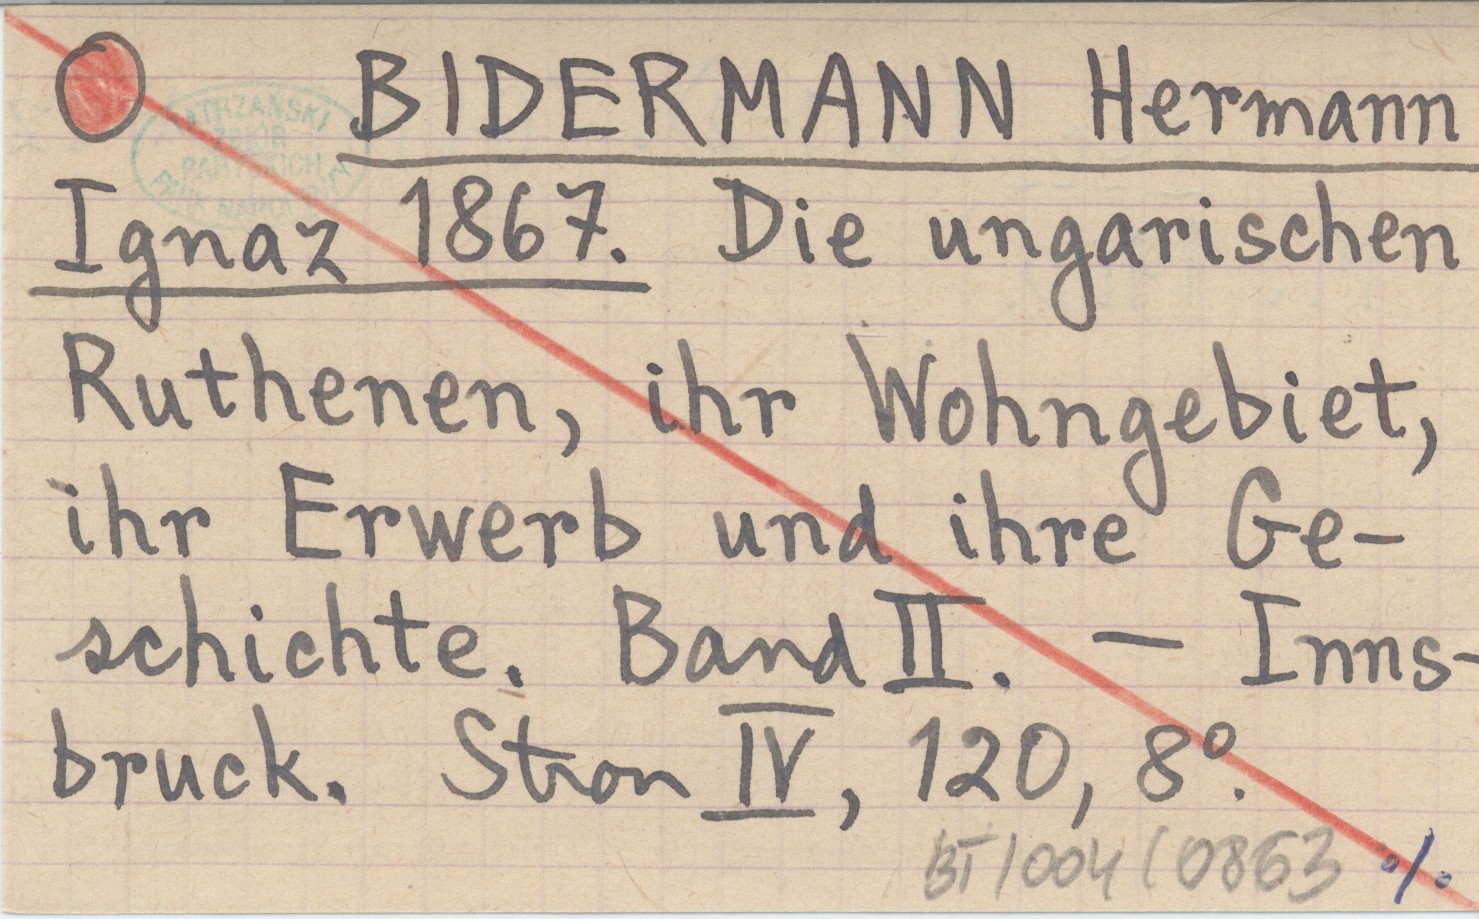 BIDERMANN Hermann
Ignaz 1867. Die ungarischen
Ruthenen, ihr Wohngebiet,
ihr Erwerb und ihre Ge-
schichte. Band II. — Inns-
bruck. Stron IV, 120, 8°.
BT/004/0863 ./.
TATRZAŃSKI
ZBIÓR
PARYSKICH
PARK NARODOWY